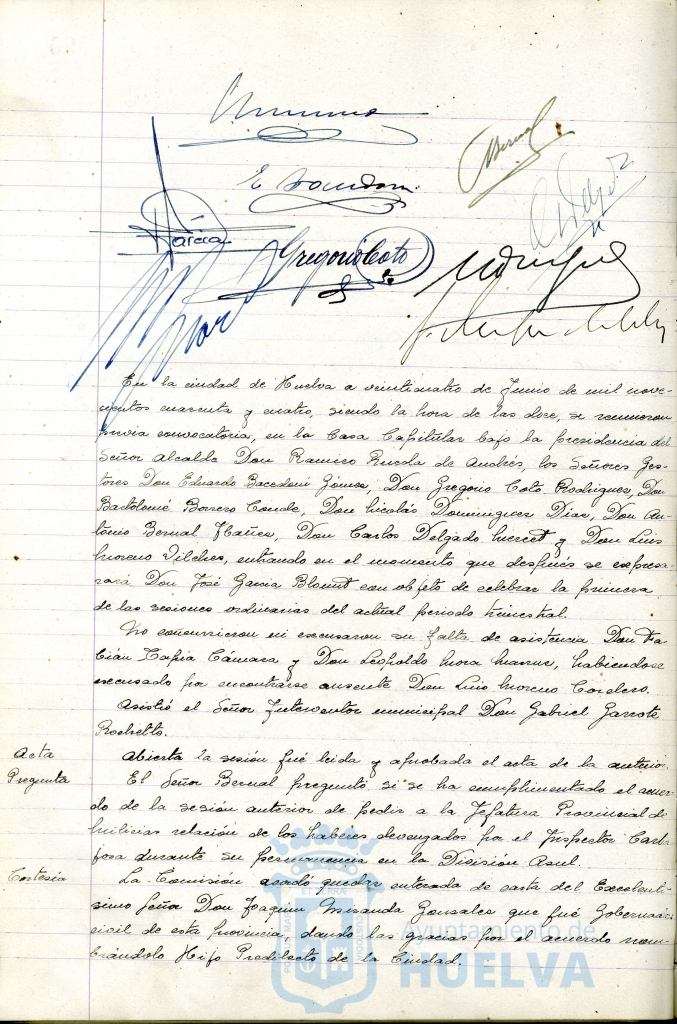 Bernal
E Bacedoni
C. Delgado
García
Gregorio Coto
En la ciudad de Huelva a veinticuatro de Junio de mil nove-
cientos cuarenta y cuatro, siendo la hora de las doce, se reunieron
previa convocatoria, en la Casa Capitular bajo la presidencia del
Señor Alcalde Don Ramiro Rueda de Andrés, los Señores Ges-
tores Don Eduardo Bacedoni Gómez, Don Gregorio Coto Rodríguez, Don
Bartolomé Borrero Conde, Don Nicolás Domínguez Díaz, Don An-
tonio Bernal Ibáñez, Don Carlos Delgado y Don Luis
Moreno Vilches, entrando en el momento que después se expre-
sará Don José García Blount con objeto de celebrar la primera
de las sesiones ordinarias del actual periodo trimestral.
No concurrieron ni excusaron su falta de asistencia Don Fa-
bián Tapia Cámara y Don Leopoldo Mora, habiéndose
excusado por encontrarse ausente Don Luis Moreno Cordero.
Asistió el Señor Interventor municipal Don Gabriel Garrote
Rochette.
Acta
Abierta la sesión fué leida y aprobada el acta de la anterior.
Pregunta
El Señor Bernal preguntó si se ha cumplimentado el acuer-
do de la sesión anterior de pedir a la Jefatura Provincial de
Milicias relación de los haberes devengados por el Inspector
durante su permanencia en la División Azul.
Cortesía
La Comisión acordó quedar enterada de carta del Excelentí-
simo Señor Don Joaquín Miranda González que fué Gobernador
civil de esta provincia, dando las gracias por el acuerdo nom-
brándolo Hijo Predilecto de la Ciudad.
Ayuntamiento de
HUELVA